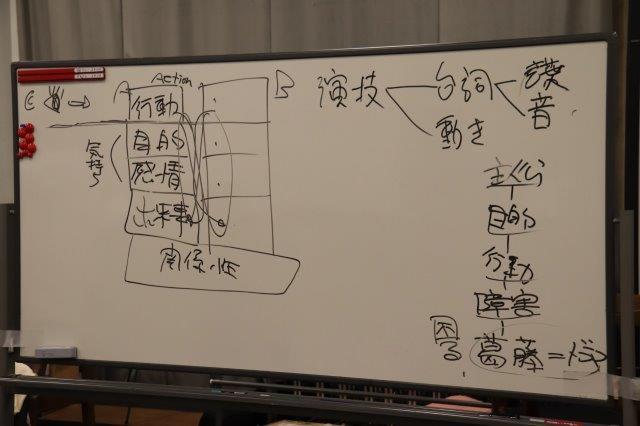 Action
A
B
行動
目的
感情
出来事
気持ち
関係性
演技
台詞
動き
音
主人公
目的
行動
障害
困る
葛藤=